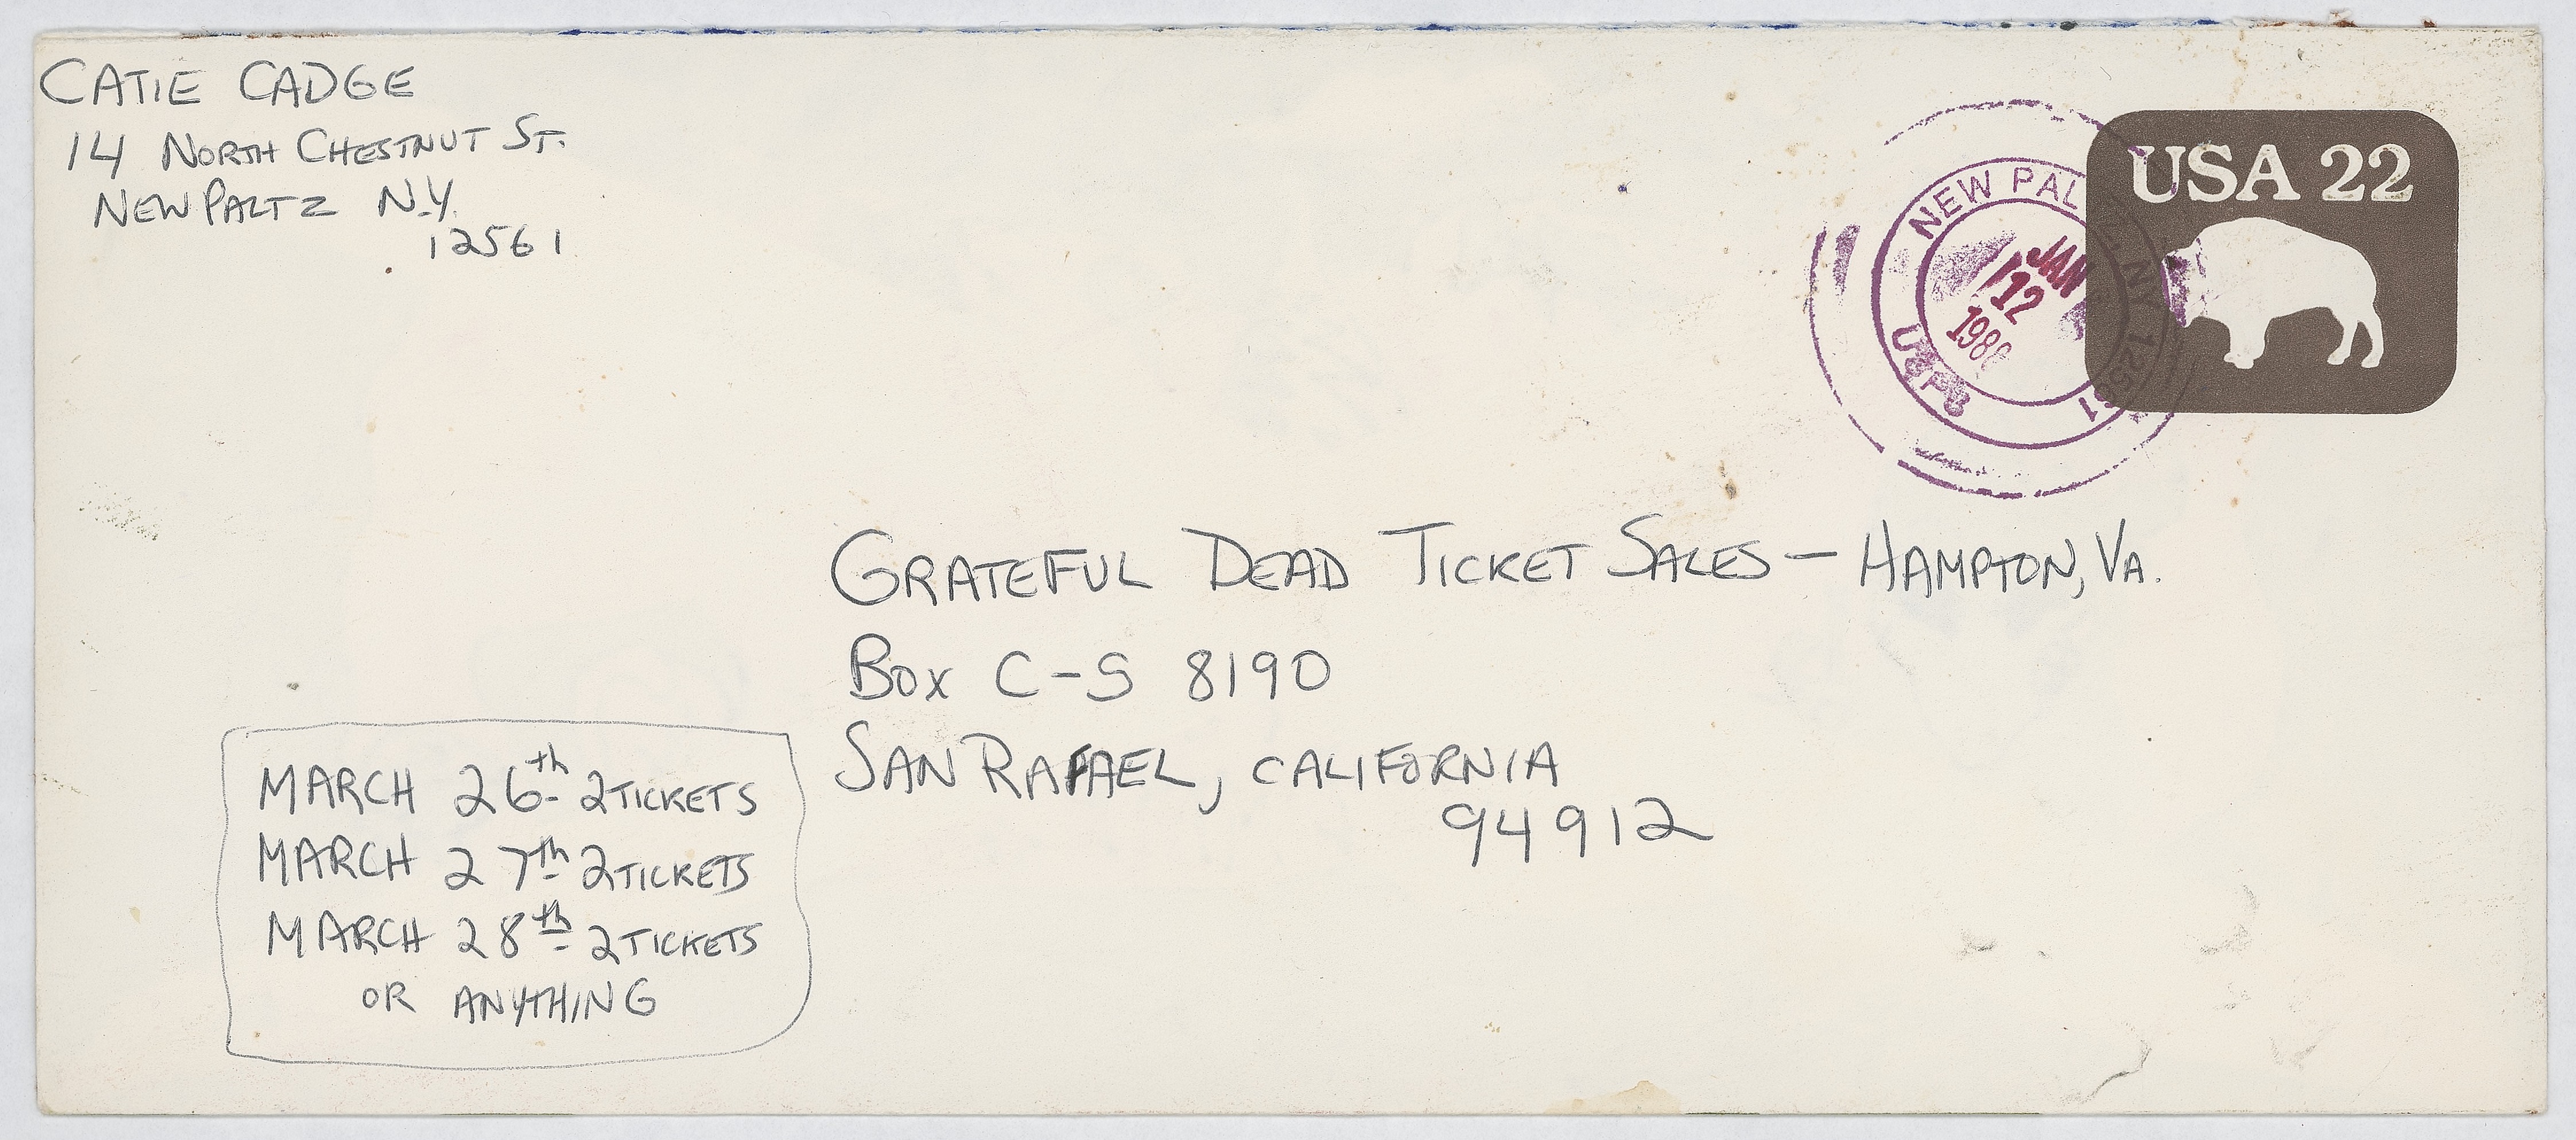 CATIE CADGE
14 NORTH CHESTNUT ST.
NEW PALTZ N.Y.
12561
USA 22
NEW PALTZ, NY 12561
USPS
JAN
12
GRATEFUL DEAD TICKET SALES — HAMPTON, VA.
BOX C-S 8190
SAN RAFAEL, CALIFORNIA
94912
MARCH 26th 2 TICKETS
MARCH 27th 2 TICKETS
MARCH 28th 2 TICKETS
OR ANYTHING